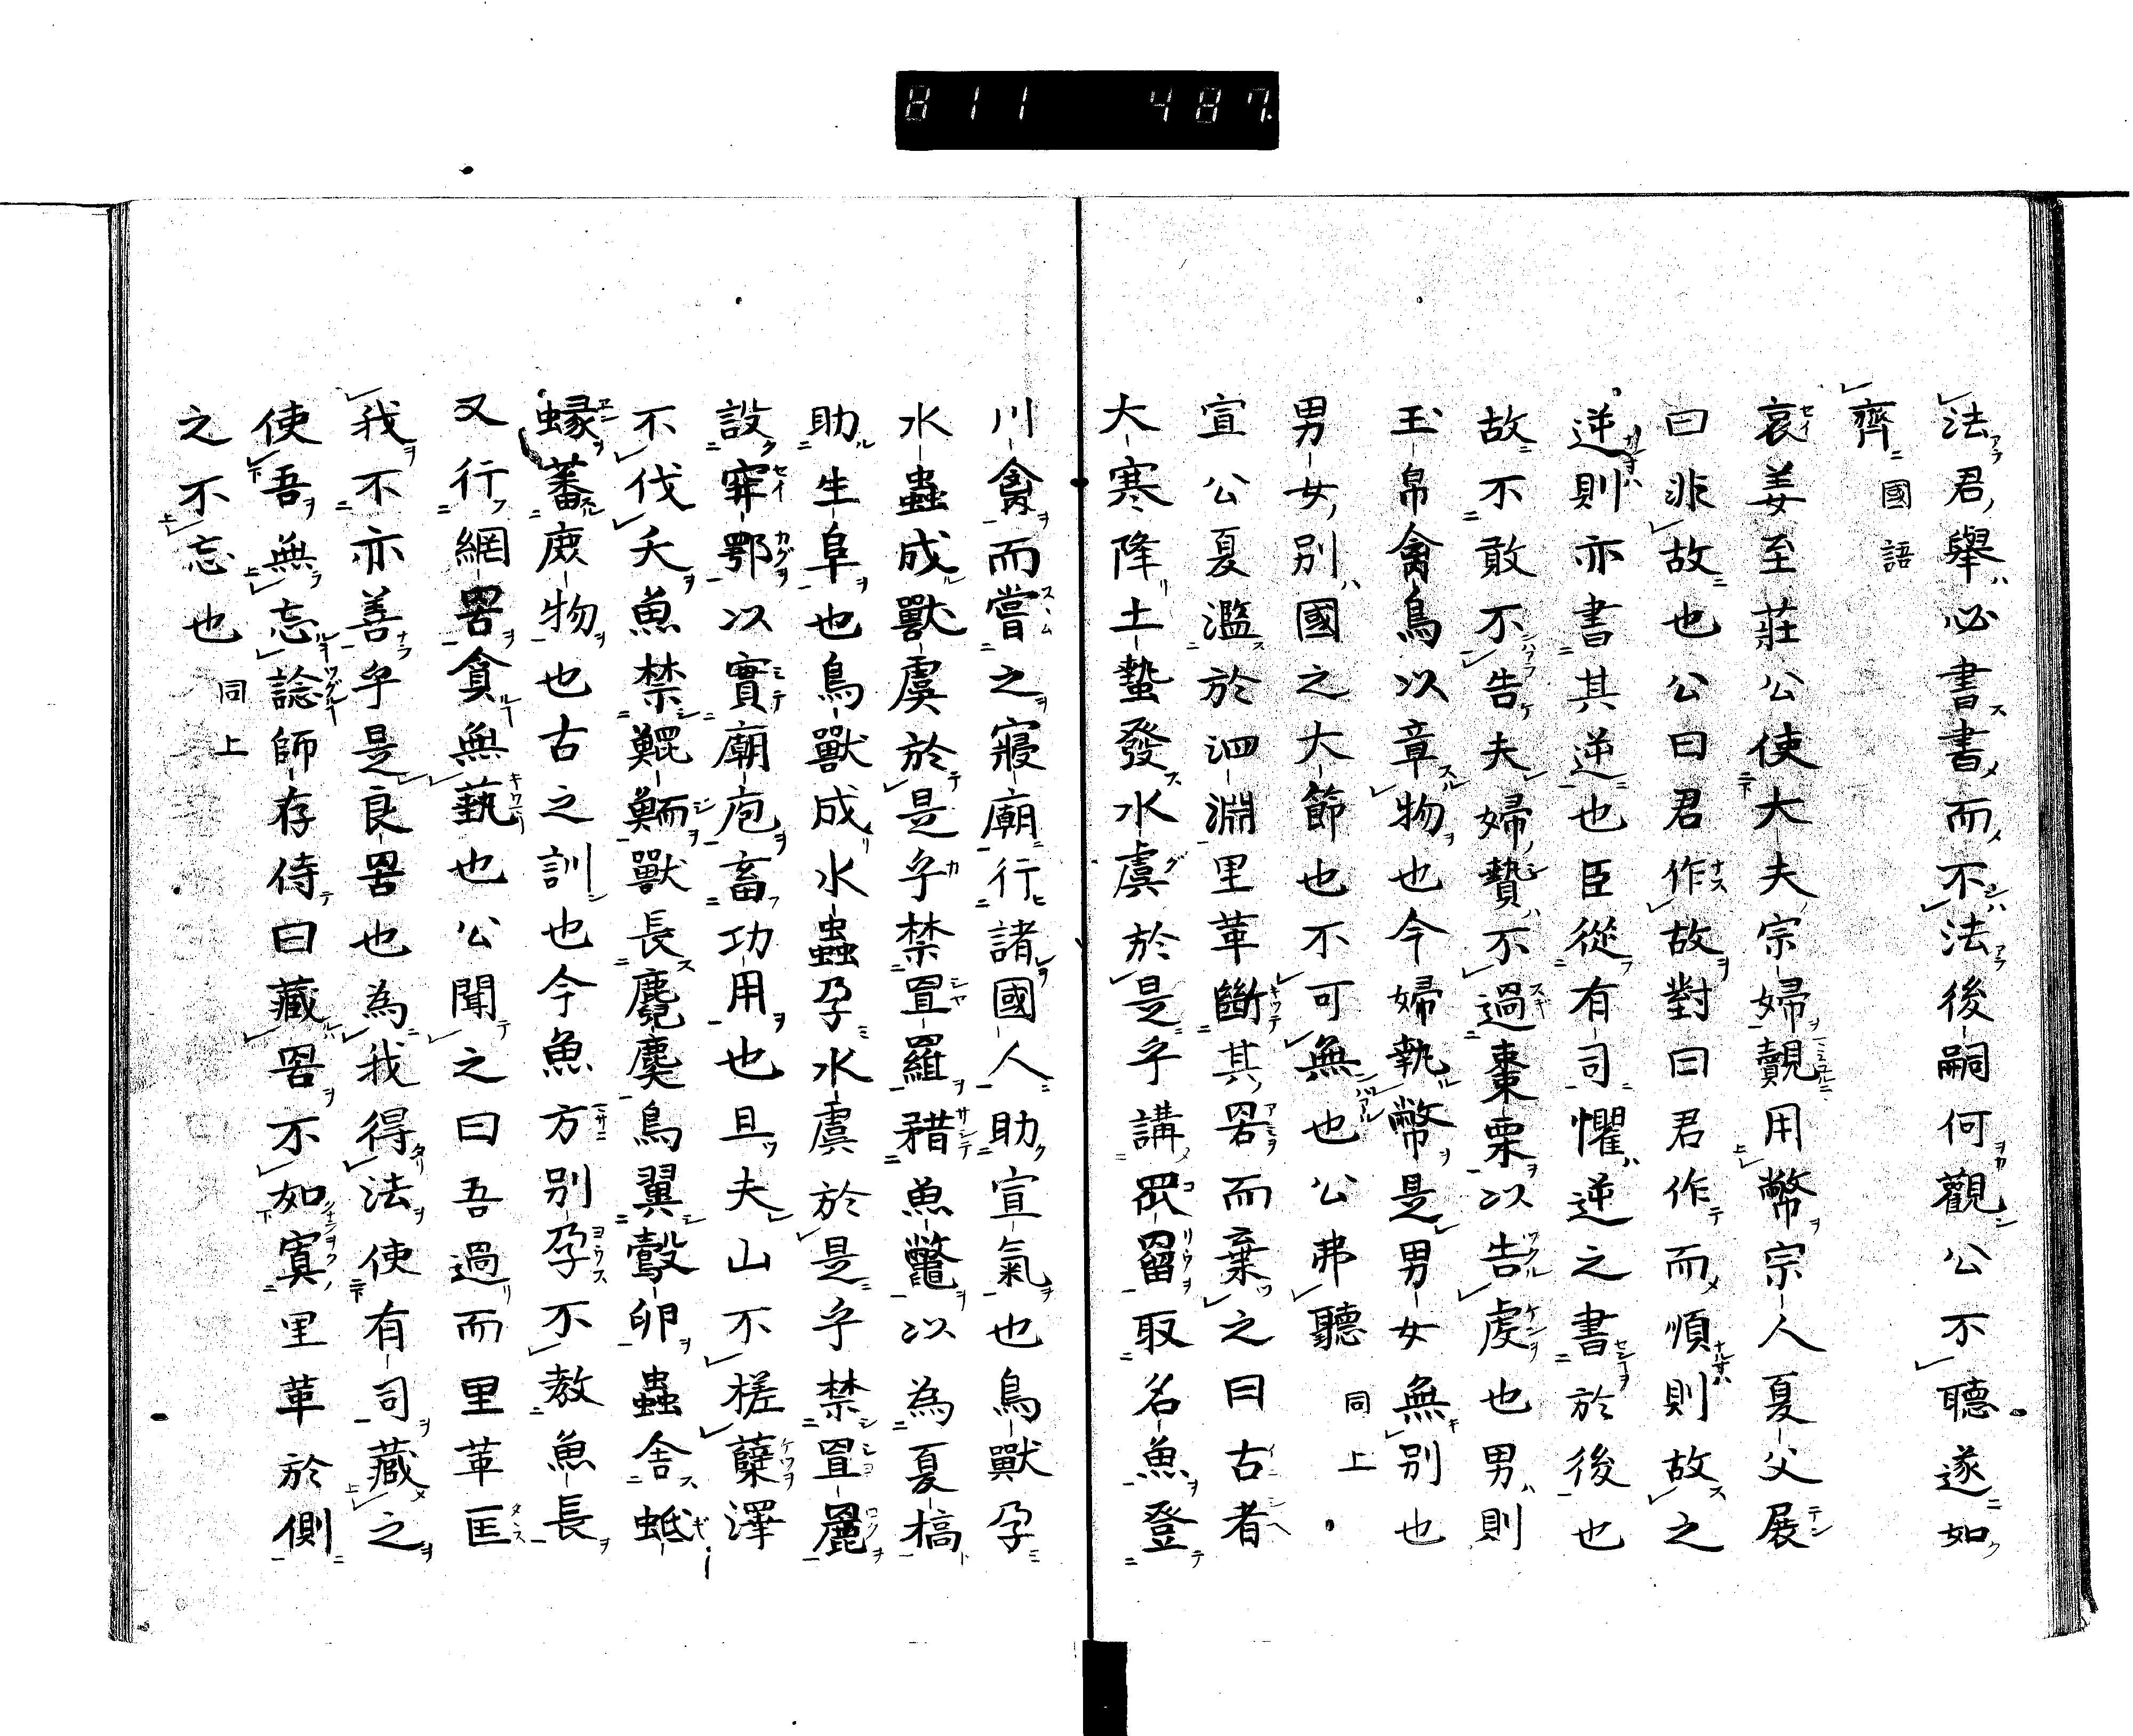 811 487.
法君舉必書書而不法後嗣何觀公不聽遂如
齊 國語
哀姜至莊公使大夫宗婦覿用幣宗人夏父展
曰非故也公曰君作故對曰君作而順則故之
逆則亦書其逆也臣從有司懼逆之書於後也
故不敢不告夫婦贄不過棗栗以告虔也男則
玉帛禽鳥以章物也今婦執幣是男女無別也
男女別國之大節也不可無也公弗聽 同上
宣公夏濫於泗淵里革斷其罟而棄之曰古者
大寒降土蟄發水虞於是乎講罛罶取名魚登
川禽而嘗之寢廟行諸國人助宣氣也鳥獸孕
水蟲成獸虞於是乎禁罝羅矠魚鼈以為夏槁
助生阜也鳥獸成水蟲孕水虞於是乎禁罝麗
設穽鄂以實廟庖畜功用也且夫山不槎蘖澤
不伐夭魚禁鯤鮞獸長麑麌鳥翼鷇卵蟲舍蚳
蝝蕃庶物也古之訓也今魚方別孕不教魚長
又行網罟貪無藝也公聞之曰吾過而里革匡
我不亦善乎是良罟也為我得法使有司藏之
使吾無忘諗師存侍曰藏罟不如寘里革於側
之不忘也 同上